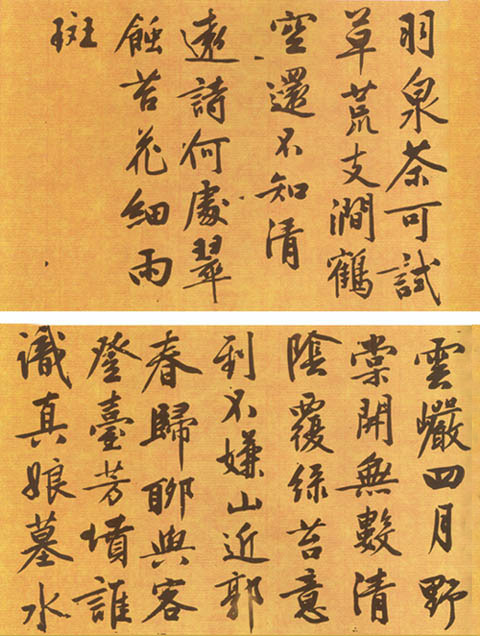 羽泉茶可試
草荒支澗鶴
空還不知清
遠詩何處翠
蝕苔花細雨
斑
雲巗四月野
棠開無數清
陰覆綠苔意
到不嫌山近郭
春歸聊與客
登臺芳墳誰
識真娘墓水